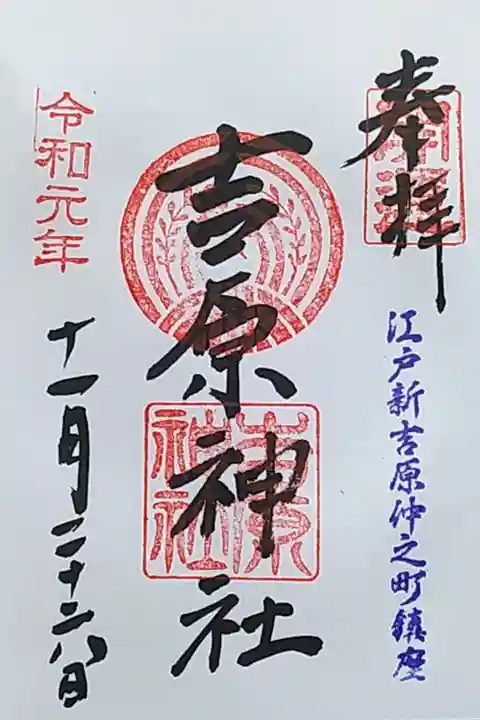 奉拝
江戸新吉原仲之町鎮座
吉原神社
吉原神社
令和元年
十一月二十六日